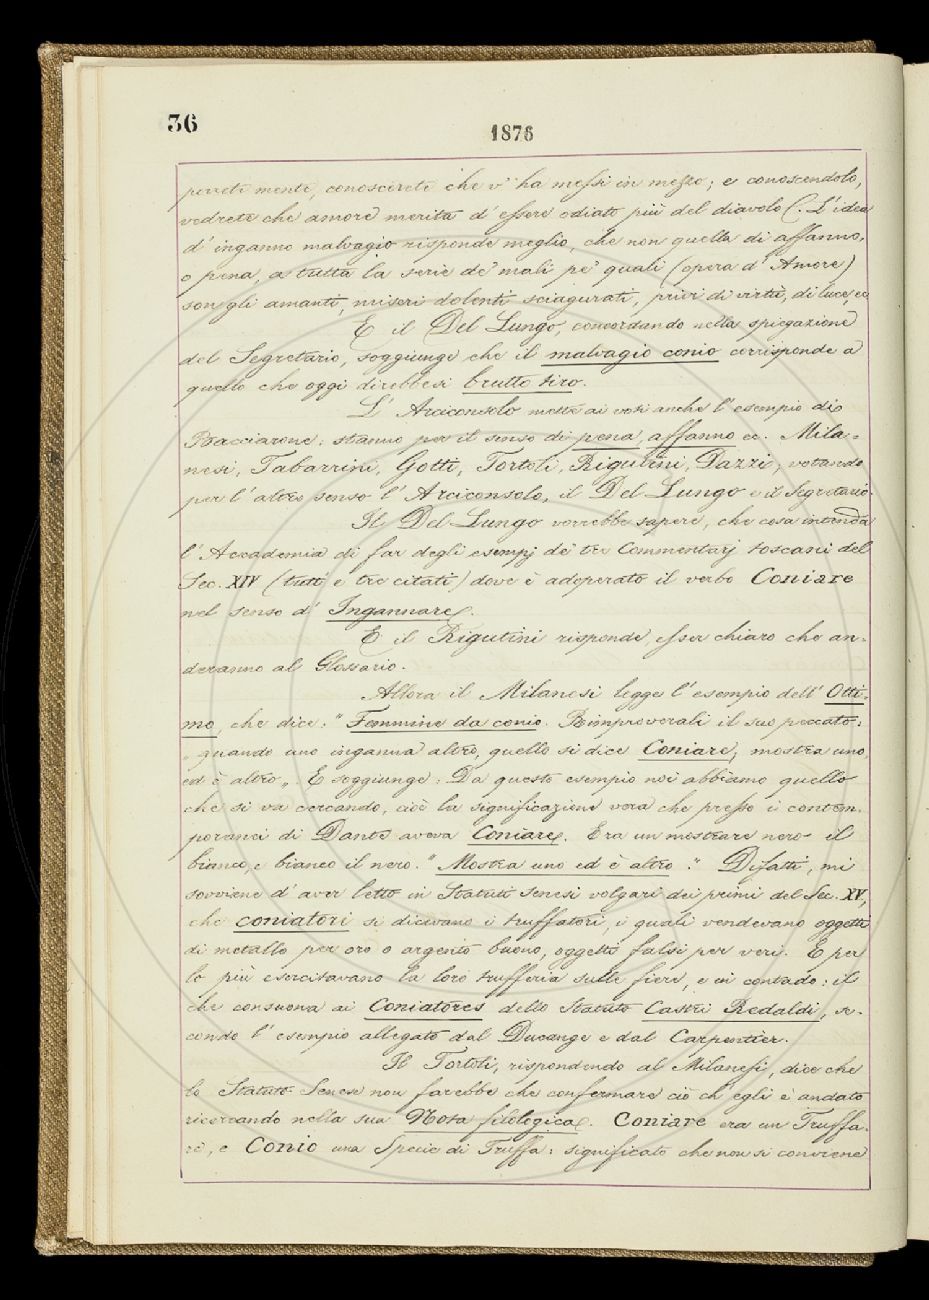 36
1876
mente, conoscerete che v' ha messi in mezzo; e conoscendolo,
vedrete che amore merita d' essere odiato più del diavolo (. L' idea
d' inganno malvagio risponde meglio, che non quella di affanno,
o pena, a tutta la serie de' mali pe' quali (opera d' Amore)
son gli amanti, miseri dolenti sciagurati, privi di virtù, di luce, ec
E il Del Lungo, concordando nella spiegazione
del Segretario, soggiunge che il malvagio conio corrisponde a
quello che oggi direbbesi brutto tiro.
L' Arciconsolo mette ai voti anche l' esempio di
Bacciarone: stanno per il senso di pena, affanno ec. Mila-
nesi, Tabarrini, Gotti, Tortoli, Rigutini, Dazzi, votando
per l' altro senso l' Arciconsolo, il Del Lungo e il Segretario.
Il Del Lungo vorrebbe sapere, che cosa intenda
l' Accademia di far degli esempj de' tre Commentarj toscani del
Sec. XIV (tutti e tre citati) dove è adoperato il verbo Coniare
nel senso d' Ingannare.
E il Rigutini risponde esser chiaro che an-
deranno al Glossario.
Allora il Milanesi legge l' esempio dell' Otti-
mo, che dice: " Femmine da conio. Rimproverali il suo peccato:
" quando uno inganna altro, quello si dice Coniare; mostra uno,
ed è altro „. E soggiunge: Da questo esempio noi abbiamo quello
che si va cercando, cioè la significazione vera che presso i contem-
poranei di Dante aveva Coniare. Era un mostrare nero il
bianco, e bianco il nero. " Mostra uno ed è altro." Difatti, mi
sovviene d' aver letto in Statuti senesi volgari dei primi del Sec. XV,
che coniatori si dicevano i truffatori, i quali vendevano oggetti
di metallo per oro o argento buono, oggetti falsi per veri. E per
lo più esercitavano la loro trufferia sulle fiere, e in contado: il
che consuona ai Coniatores dello Statuto Castri Redaldi, se-
condo l' esempio allegato dal Ducange e dal Carpentier.
Il Tortoli, rispondendo al Milanesi, dice che
lo Statuto Senese non farebbe che confermare ciò ch' egli è andato
ricercando nella sua Nota filologica. Coniare era un Truffa-
re, e Conio una Specie di Truffa: significato che non si conviene